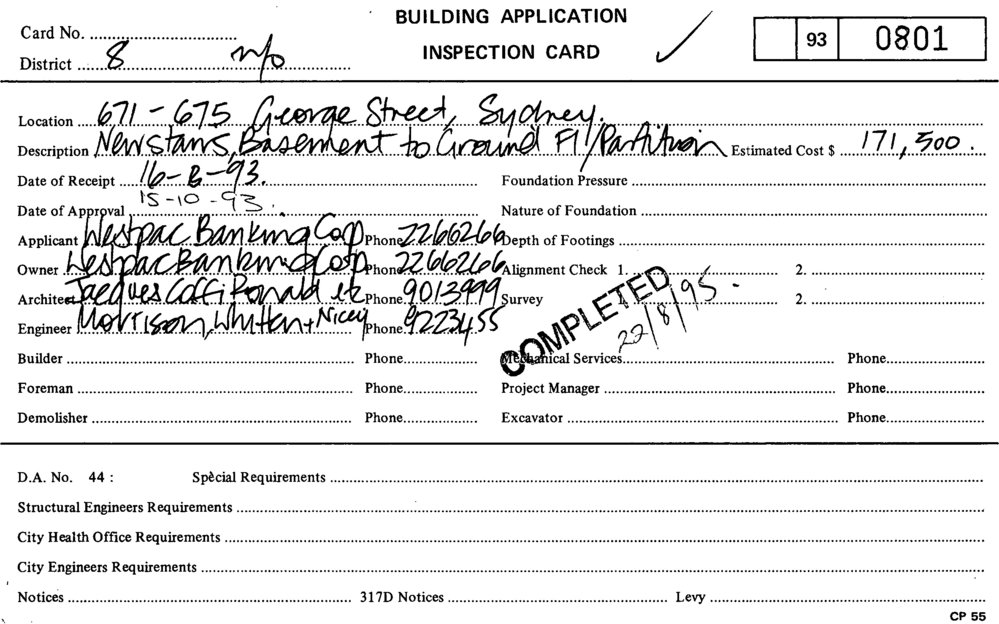 BUILDING APPLICATION
INSPECTION CARD
Card No.
District 8 n/o
93 0801
Location 671 - 675 George Street, Sydney.
Description New stairs, Basement to Ground Fl / Partition Estimated Cost $ 171,500.
Date of Receipt 16-8-93. Foundation Pressure
Date of Approval 15-10-93. Nature of Foundation
Applicant Westpac Banking Corp Phone 2266266 Depth of Footings
Owner Westpac Banking Corp Phone 2266266 Alignment Check 1. 2.
Architect Jacques Coffi Ronald Phone 9013999 Survey 1. 2.
Engineer Morrison, Whitten + Phone 9223455
COMPLETED 22/8/95.
Builder Phone Mechanical Services Phone
Foreman Phone Project Manager Phone
Demolisher Phone Excavator Phone
D.A. No. 44 : Special Requirements
Structural Engineers Requirements
City Health Office Requirements
City Engineers Requirements
Notices 317D Notices Levy
CP 55